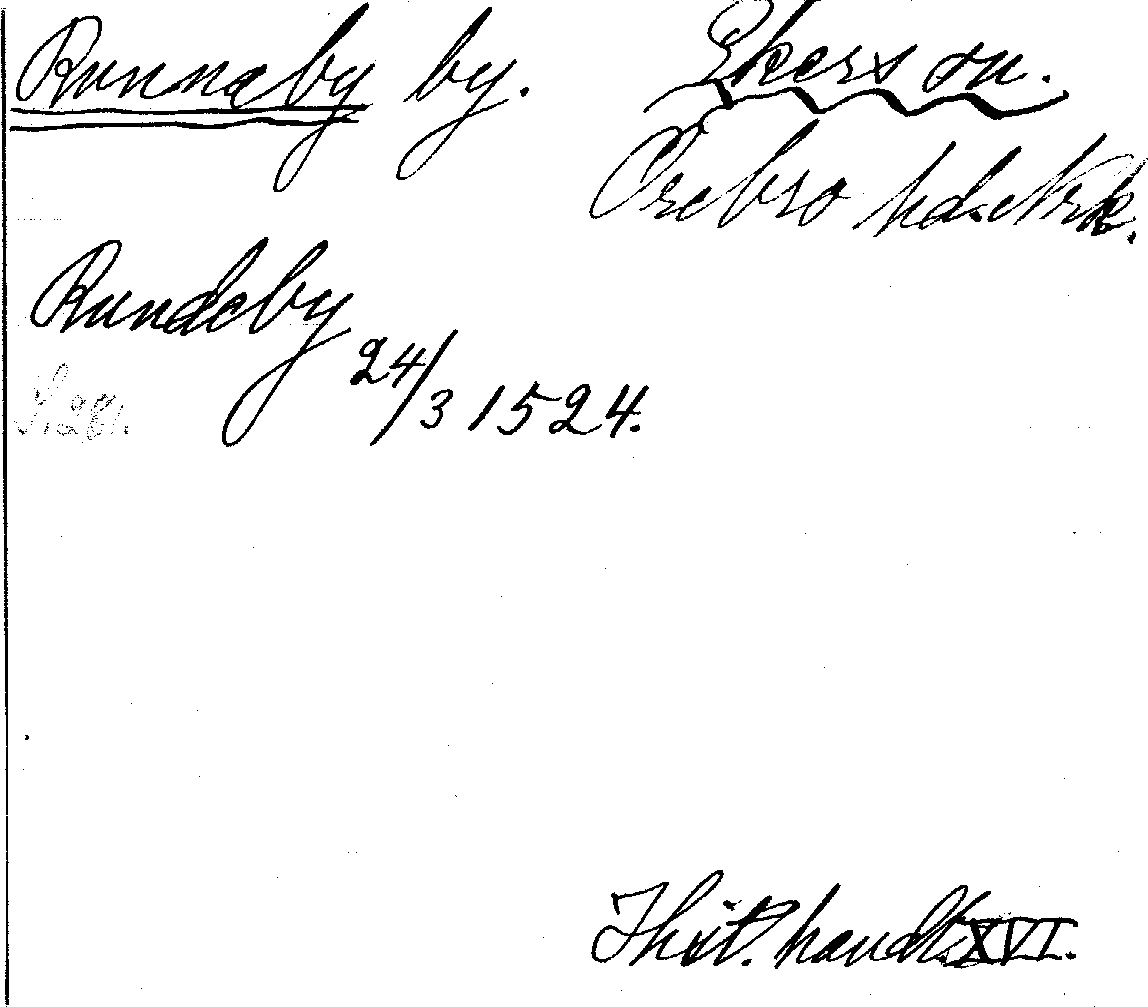 Runnaby by. Ekers sn.
Örebro hd. Nrk.
Rundeby
24/3 1524.
S. 281.
Thist. handl. XVI.